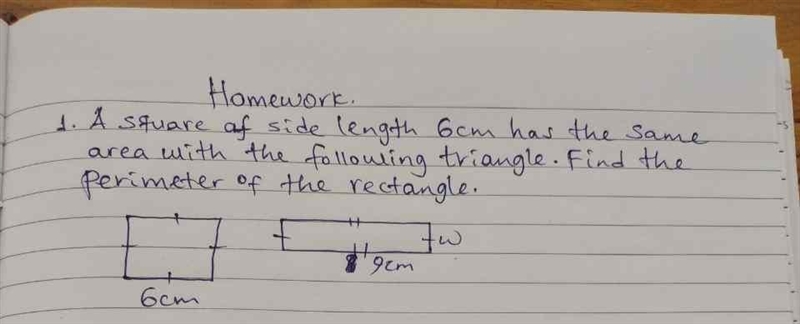 Homework.
1. A square of side length 6cm has the same
area with the following triangle. Find the
perimeter of the rectangle.
w
9cm
6cm